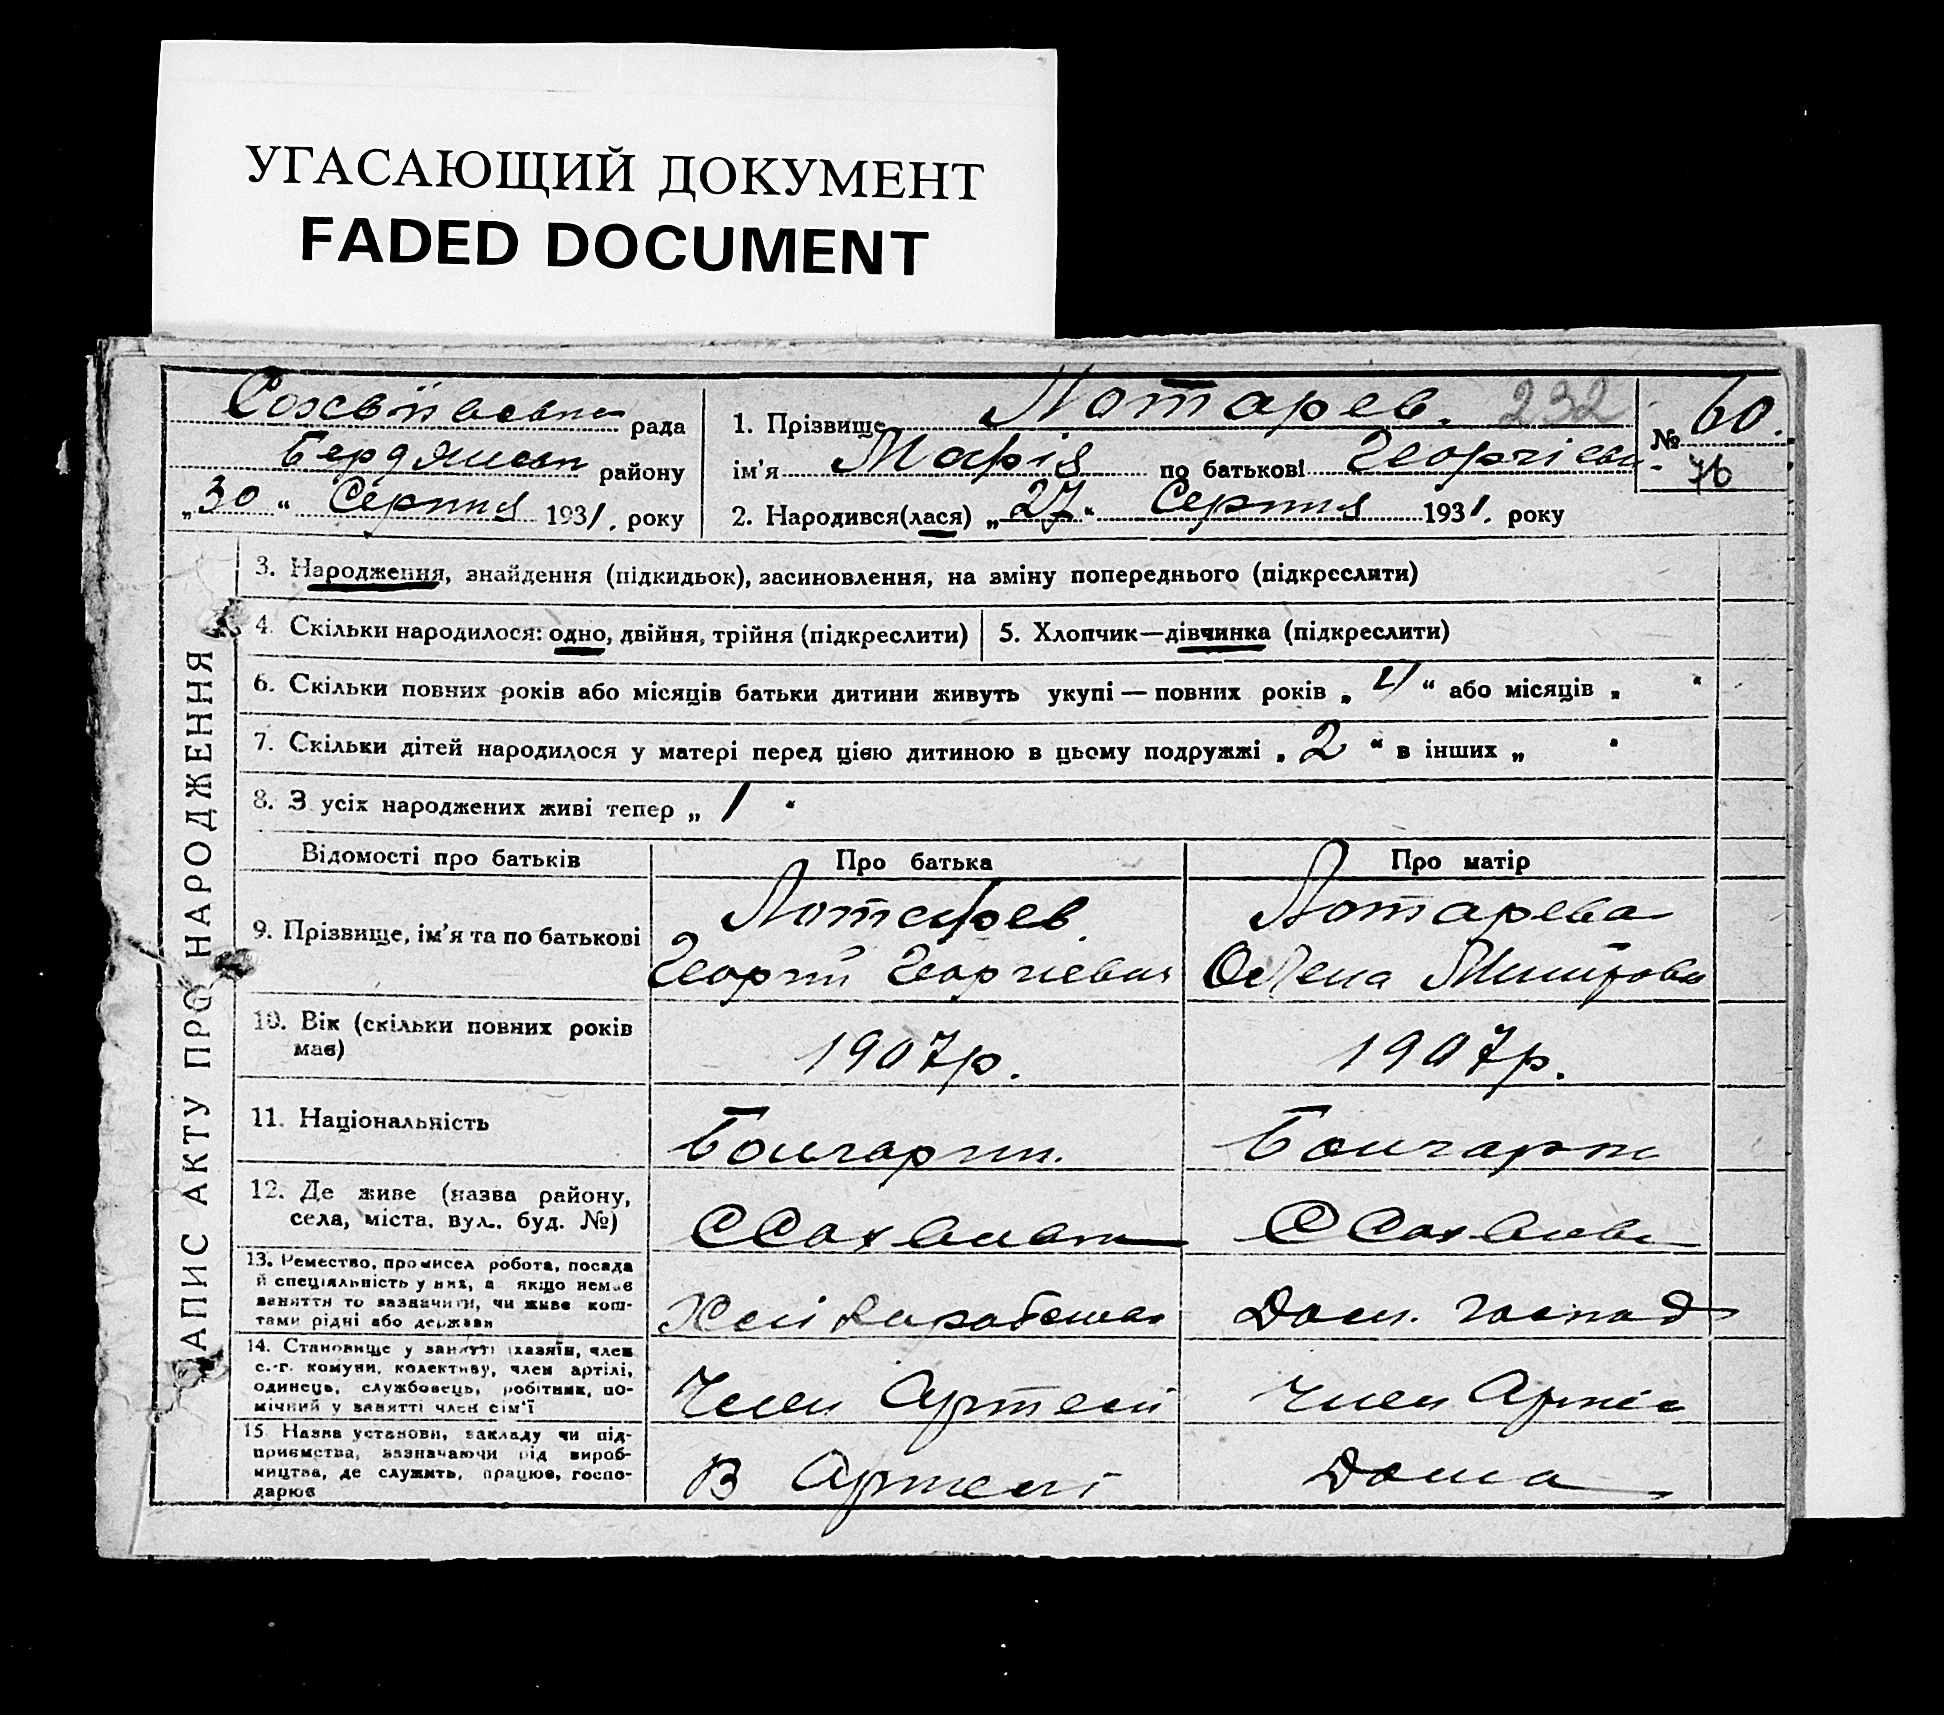 УГАСАЮЩИЙ ДОКУМЕНТ
FADED DOCUMENT
рада
району
„30“ Серпня 1931. року
1. Прізвище Лотарев. 232
ім'я Марія по батькові Георгіевн
2. Народився(лася) „27“ Серпня 1931. року
№ 60.
76
ЗАПИС АКТУ ПРО НАРОДЖЕННЯ
3. Народження, знайдення (підкидьок), засиновлення, на зміну попереднього (підкреслити)
4. Скільки народилося: одно, двійня, трійня (підкреслити)
5. Хлопчик—дівчинка (підкреслити)
6. Скільки повних років або місяців батьки дитини живуть укупі — повних років „ 4 “ або місяців „ “
7. Скільки дітей народилося у матері перед цією дитиною в цьому подружжі „ 2 “ в інших „ “
8. З усіх народжених живі тепер „ 1 “
Відомості про батьків
Про батька
Про матір
9. Прізвище, ім'я та по батькові
Лотарев
Георгій Георгіевич
Лотарева
Олена
10. Вік (скільки повних років
має)
1907р.
1907р.
11. Національність
Болгарин.
Болгарк
12. Де живе (назва району,
села, міста, вул., буд. №)
13. Ремество, промисел робота, посада
й спеціяльність у них, а якщо немає
заняття то зазначити, чи живе кош-
тами рідні або держави
Дом. господ
14. Становище у занятті (хазяїн, член
с.-г. комуни, колективу, член артілі,
одинець, службовець, робітник, по-
мічний у занятті член сім'ї
Член Артелі
Член
15. Назва установи, закладу чи під-
приємства, зазначаючи рід вироб-
ництва, де служить, працює, госпо-
дарює
В Артелі
Дома